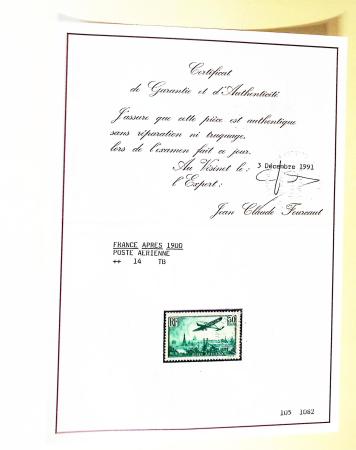 Certificat
de Garantie et d'Authenticité
J'assure que cette pièce est authentique
sans réparation ni truquage,
lors de l'examen fait ce jour.
Au Vésinet le: 3 Décembre 1991
l'Expert:
Jean Claude Foureaut
FRANCE APRES 1900
POSTE AERIENNE
++ 14 TB
RF 50
105 1062